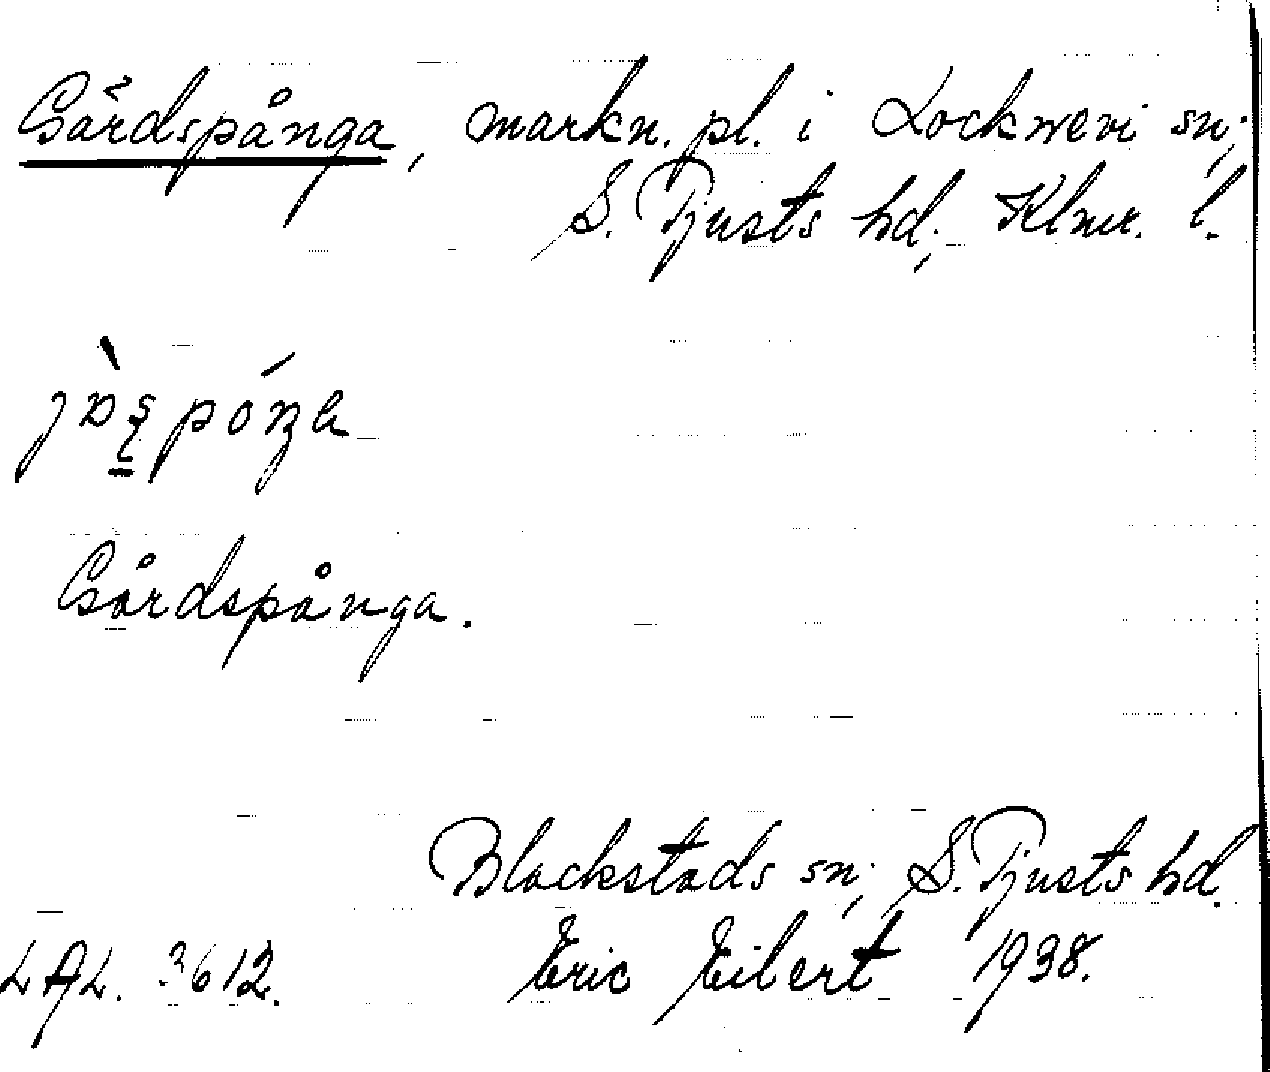 Gårdspånga, markn. pl. i Locknevi sn;
S. Tjusts hd, Klmr. l.
Gårdspånga.
Blackstads sn, S. Tjusts hd.
LAL. 3612. Eric Eibert 1938.